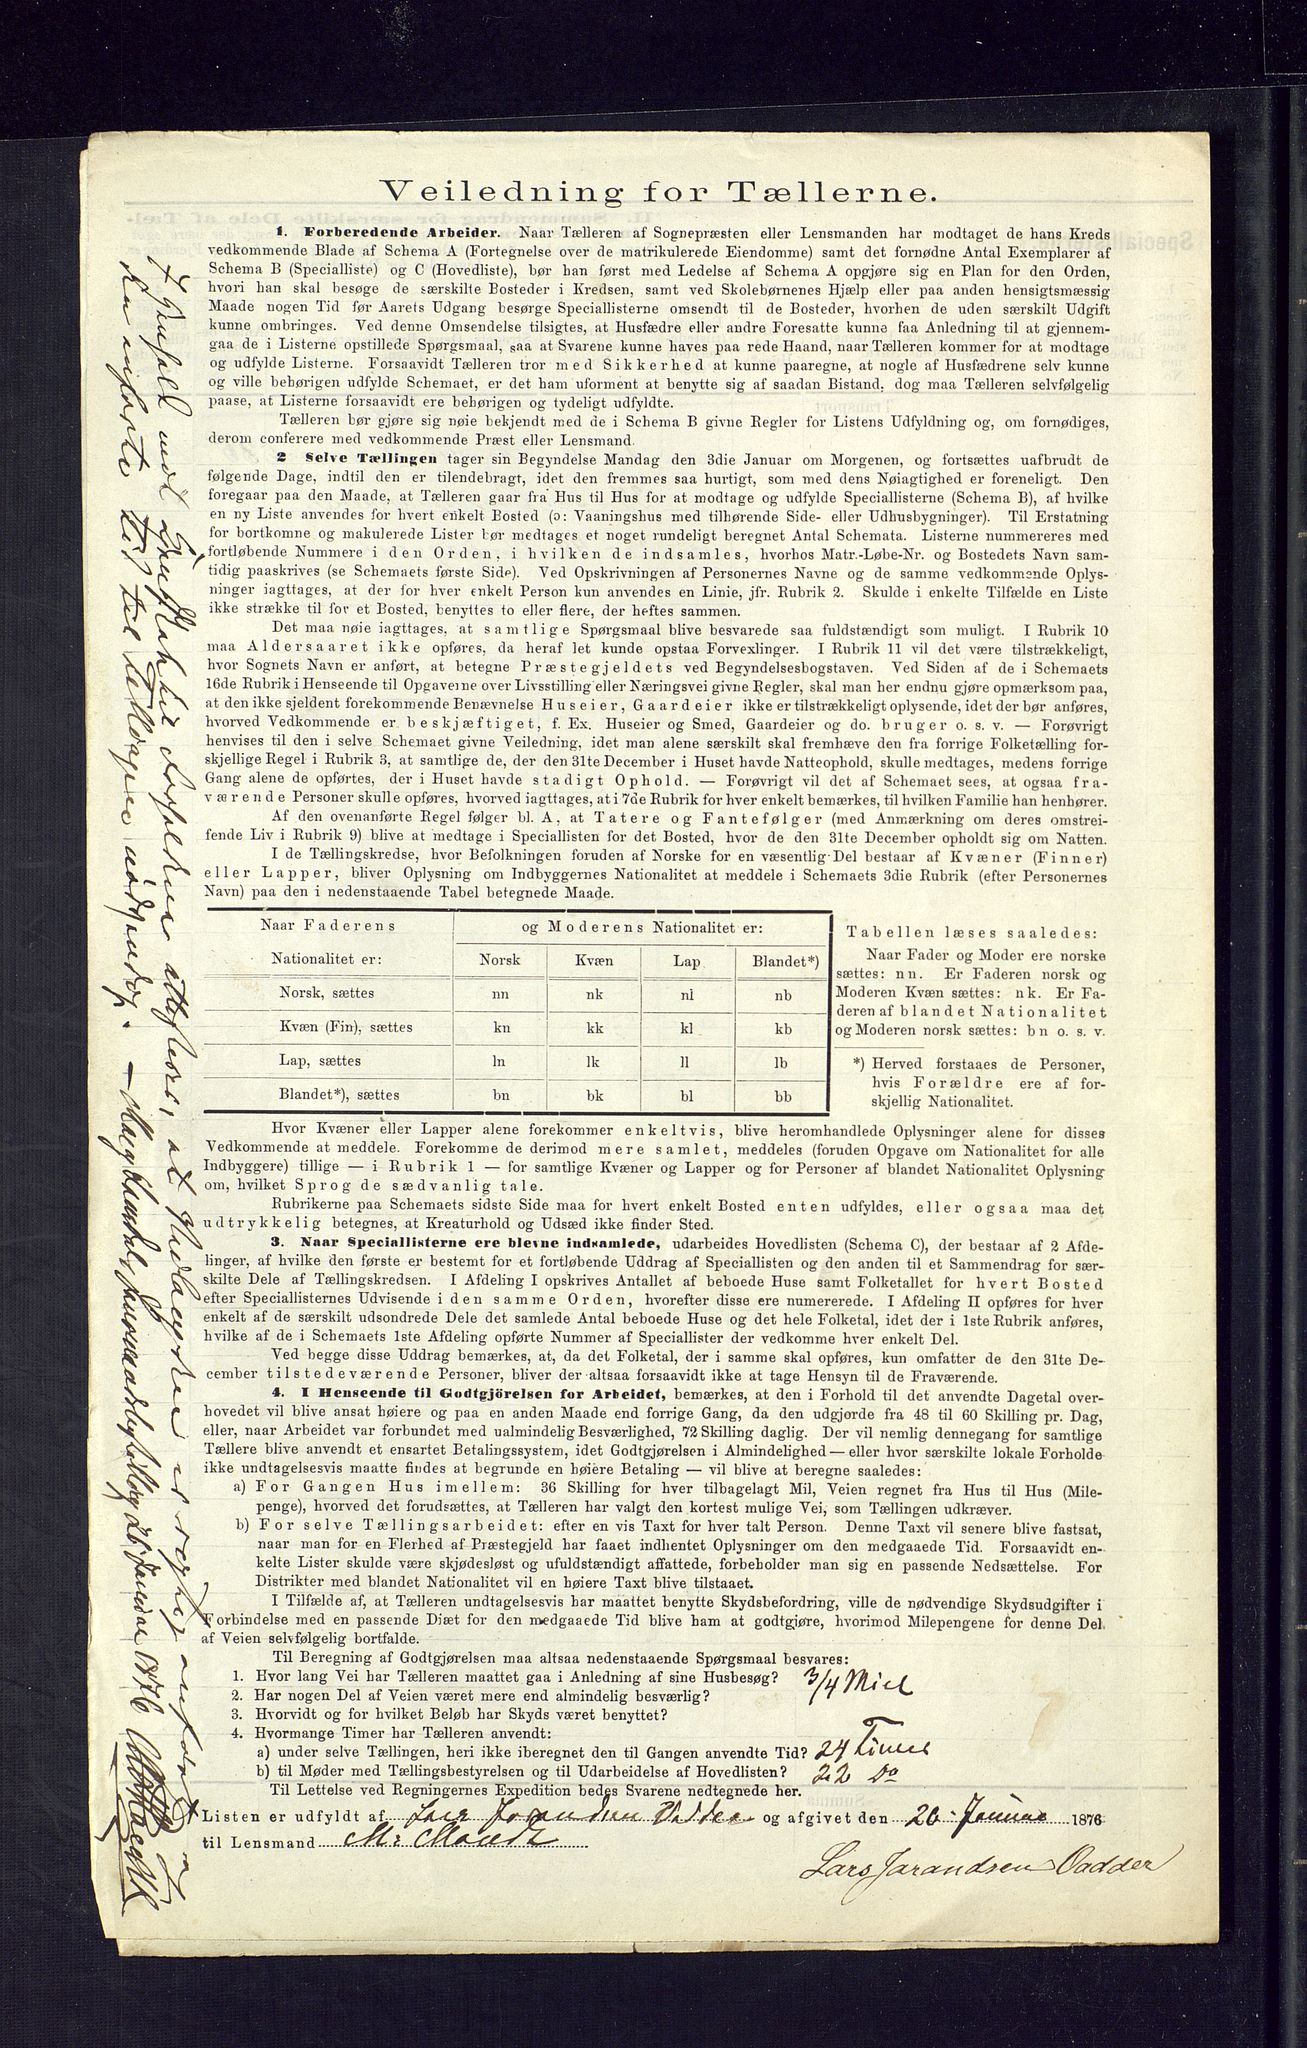 Veiledning for Tællerne.
1. Forberedende Arbeider. Naar Tælleren af Sognepræsten eller Lensmanden har modtaget de hans Kreds
vedkommende Blade af Schema A (Fortegnelse over de matrikulerede Eiendomme) samt det fornødne Antal Exemplarer af
Schema B (Specialliste) og C (Hovedliste), bør han først med Ledelse af Schema A opgjøre sig en Plan for den Orden,
hvori han skal besøge de særskilte Bosteder i Kredsen, samt ved Skolebørnenes Hjælp eller paa anden hensigtsmæssig
Maade nogen Tid før Aarets Udgang besørge Speciallisterne omsendt til de Bosteder, hvorhen de uden særskilt Udgift
kunne ombringes. Ved denne Omsendelse tilsigtes, at Husfædre eller andre Foresatte kunne faa Anledning til at gjennem-
gaa de i Listerne opstillede Spørgsmaal, saa at Svarene kunne haves paa rede Haand, naar Tælleren kommer for at modtage
og udfylde Listerne. Forsaavidt Tælleren tror med Sikkerhed at kunne paaregne, at nogle af Husfædrene selv kunne
og ville behørigen udfylde Schemaet, er det ham uforment at benytte sig af saadan Bistand, dog maa Tælleren selvfølgelig
paase, at Listerne forsaavidt ere behørigen og tydeligt udfyldte.
Tælleren bør gjøre sig nøie bekjendt med de i Schema B givne Regler for Listens Udfyldning og, om fornødiges,
derom conferere med vedkommende Præst eller Lensmand.
2 Selve Tællingen tager sin Begyndelse Mandag den 3die Januar om Morgenen, og fortsættes uafbrudt de
følgende Dage, indtil den er tilendebragt, idet den fremmes saa hurtigt, som med dens Nøiagtighed er foreneligt. Den
foregaar paa den Maade, at Tælleren gaar fra Hus til Hus for at modtage og udfylde Speciallisterne (Schema B), af hvilke
en ny Liste anvendes for hvert enkelt Bosted (ɔ: Vaaningshus med tilhørende Side- eller Udhusbygninger). Til Erstatning
for bortkomne og makulerede Lister bør medtages et noget rundeligt beregnet Antal Schemata. Listerne nummereres med
fortløbende Nummere i den Orden, i hvilken de indsamles, hvorhos Matr.-Løbe-Nr. og Bostedets Navn sam-
tidig paaskrives (se Schemaets første Side). Ved Opskrivningen af Personernes Navne og de samme vedkommende Oplys-
ninger iagttages, at der for hver enkelt Person kun anvendes en Linie, jfr. Rubrik 2. Skulde i enkelte Tilfælde en Liste
ikke strække til for et Bosted, benyttes to eller flere, der heftes sammen.
Det maa nøie iagttages, at samtlige Spørgsmaal blive besvarede saa fuldstændigt som muligt. I Rubrik 10
maa Aldersaaret ikke opføres, da heraf let kunde opstaa Forvexlinger. I Rubrik 11 vil det være tilstrækkeligt,
hvor Sognets Navn er anført, at betegne Præstegjeldets ved Begyndelsesbogstaven. Ved Siden af de i Schemaets
16de Rubrik i Henseende til Opgaverne over Livsstilling eller Næringsvei givne Regler, skal man her endnu gjøre opmærksom paa,
at den ikke sjeldent forekommende Benævnelse Huseier, Gaardeier ikke er tilstrækkeligt oplysende, idet der bør anføres,
hvorved Vedkommende er beskjæftiget, f. Ex. Huseier og Smed, Gaardeier og do. bruger o. s. v. — Forøvrigt
henvises til den i selve Schemaet givne Veiledning, idet man alene særskilt skal fremhæve den fra forrige Folketælling for-
skjellige Regel i Rubrik 3, at samtlige de, der den 31te December i Huset havde Natteophold, skulle medtages, medens forrige
Gang alene de opførtes, der i Huset havde stadigt Ophold. — Forøvrigt vil det af Schemaet sees, at ogsaa fra-
værende Personer skulle opføres, hvorved iagttages, at i 7de Rubrik for hver enkelt bemærkes, til hvilken Familie han henhører.
Af den ovenanførte Regel følger bl. A. at Tatere og Fantefølger (med Anmærkning om deres omstrei-
fende Liv i Rubrik 9) blive at medtage i Speciallisten for det Bosted, hvor de den 31te December opholdt sig om Natten.
I de Tællingskredse, hvor Befolkningen foruden af Norske for en væsentlig Del bestaar af Kvæner (Finner)
eller Lapper, bliver Oplysning om Indbyggernes Nationalitet at meddele i Schemaets 3die Rubrik (efter Personernes
Navn) paa den i nedenstaaende Tabel betegnede Maade.
Naar Faderens og Moderens Nationalitet er:
Nationalitet er: Norsk Kvæn Lap Blandet*)
Norsk, sættes nn nk nl nb
Kvæn (Fin), sættes kn kk kl kb
Lap, sættes ln lk ll lb
Blandet*), sættes bn bk bl bb
Tabellen læses saaledes:
Naar Fader og Moder ere norske
sættes: nn. Er Faderen norsk og
Moderen Kvæn sættes: nk. Er Fa-
deren af blandet Nationalitet
og Moderen norsk sættes: bn o. s. v.
*) Herved forstaaes de Personer,
hvis Forældre ere af for-
skjellig Nationalitet.
Hvor Kvæner eller Lapper alene forekommer enkeltvis, blive heromhandlede Oplysninger alene for disses
Vedkommende at meddele. Forekomme de derimod mere samlet, meddeles (foruden Opgave om Nationalitet for alle
Indbyggere) tillige — i Rubrik 1 — for samtlige Kvæner og Lapper og for Personer af blandet Nationalitet Oplysning
om, hvilket Sprog de sædvanlig tale.
Rubrikerne paa Schemaets sidste Side maa for hvert enkelt Bosted enten udfyldes, eller ogsaa maa det
udtrykkelig betegnes, at Kreaturhold og Udsæd ikke finder Sted.
3. Naar Speciallisterne ere blevne indsamlede, udarbeides Hovedlisten (Schema C), der bestaar af 2 Afde-
linger, af hvilke den første er bestemt for et fortløbende Uddrag af Speciallisten og den anden til et Sammendrag for sær-
skilte Dele af Tællingskredsen. I Afdeling I opskrives Antallet af beboede Huse samt Folketallet for hvert Bosted
efter Speciallisternes Udvisende i den samme Orden, hvorefter disse ere nummererede. I Afdeling II opføres for hver
enkelt af de særskilt udsondrede Dele det samlede Antal beboede Huse og det hele Folketal, idet der i 1ste Rubrik anføres,
hvilke af de i Schemaets 1ste Afdeling opførte Nummer af Speciallister der vedkomme hver enkelt Del.
Ved begge disse Uddrag bemærkes, at, da det Folketal, der i samme skal opføres, kun omfatter de den 31te De-
cember tilstedeværende Personer, bliver der altsaa forsaavidt ikke at tage Hensyn til de Fraværende.
4. I Henseende til Godtgjörelsen for Arbeidet, bemærkes, at den i Forhold til det anvendte Dagetal over-
hovedet vil blive ansat høiere og paa en anden Maade end forrige Gang, da den udgjorde fra 48 til 60 Skilling pr. Dag,
eller, naar Arbeidet var forbundet med ualmindelig Besværlighed, 72 Skilling daglig. Der vil nemlig dennegang for samtlige
Tællere blive anvendt et ensartet Betalingssystem, idet Godtgjørelsen i Almindelighed — eller hvor særskilte lokale Forholde
ikke undtagelsesvis maatte findes at begrunde en høiere Betaling — vil blive at beregne saaledes:
a) For Gangen Hus imellem: 36 Skilling for hver tilbagelagt Mil, Veien regnet fra Hus til Hus (Mile-
penge), hvorved det forudsættes, at Tælleren har valgt den kortest mulige Vei, som Tællingen udkræver.
b) For selve Tællingsarbeidet: efter en vis Taxt for hver talt Person. Denne Taxt vil senere blive fastsat,
naar man for en Flerhed af Præstegjeld har faaet indhentet Oplysninger om den medgaaede Tid. Forsaavidt en-
kelte Lister skulde være skjødesløst og ufuldstændigt affattede, forbeholder man sig en passende Nedsættelse. For
Distrikter med blandet Nationalitet vil en høiere Taxt blive tilstaaet.
I Tilfælde af, at Tælleren undtagelsesvis har maattet benytte Skydsbefordring, ville de nødvendige Skydsudgifter i
Forbindelse med en passende Diæt for den medgaaede Tid blive ham at godtgjøre, hvorimod Milepengene for denne Del
af Veien selvfølgelig bortfalde.
Til Beregning af Godtgjørelsen maa altsaa nedenstaaende Spørgsmaal besvares:
1. Hvor lang Vei har Tælleren maattet gaa i Anledning af sine Husbesøg? 3/4 Miel
2. Har nogen Del af Veien været mere end almindelig besværlig?
3. Hvorvidt og for hvilket Beløb har Skyds været benyttet?
4. Hvormange Timer har Tælleren anvendt:
a) under selve Tællingen, heri ikke iberegnet den til Gangen anvendte Tid? 24 Timer
b) til Møder med Tællingsbestyrelsen og til Udarbeidelse af Hovedlisten? 22 Do
Til Lettelse ved Regningernes Expedition bedes Svarene nedtegnede her.
Listen er udfyldt af Lars Jarandsen Vadder og afgivet den 26. Januar 1876
til Lensmand Mr Mandt
Lars Jarandsen Vadder